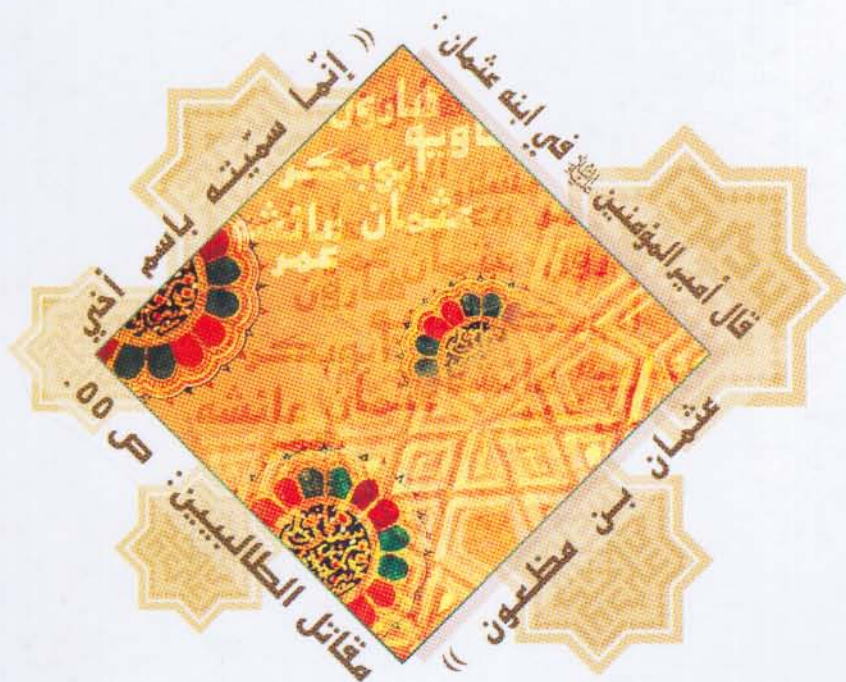 قال أمير المؤمنين عليه السلام في ابنه عثمان :
(( إنّما سمّيته باسم أخي
عثمان بن مظعون ))
مقاتل الطالبيين: ص ٥٥.
هارون
أبوبكر
عثمان عائشه
عمر